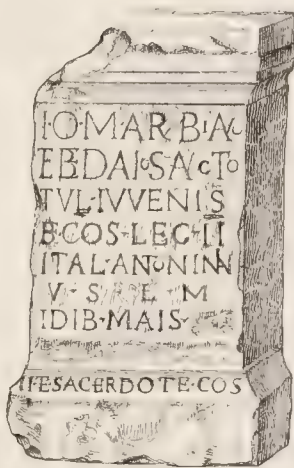 I·O·M·ARBIA
ET·BIDAI·SANCTO
TVL·IVVENIS
B·COS·LEG·II
ITAL·ANTONINIAN
V·S·L·M
IDIB·MAIS·
SACERDOTE·COS